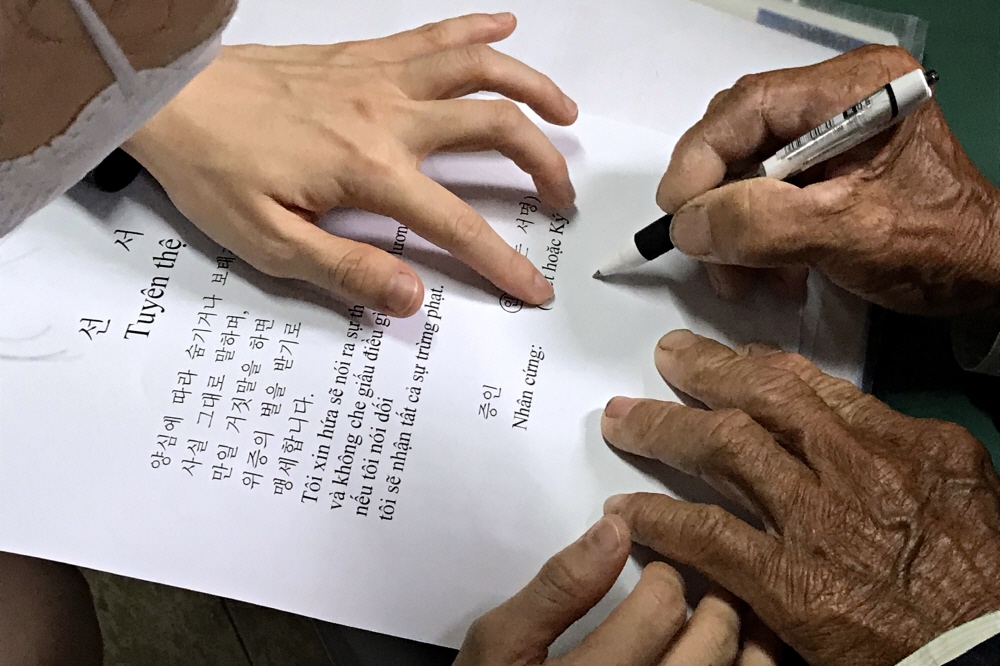 선 서
Tuyên thệ
양심에 따라 숨기거나 보태
사실 그대로 말하며,
만일 거짓말을 하면
위증의 벌을 받기로
맹세합니다.
Tôi xin hứa sẽ nói ra sự th
và không che giấu điều gì
nếu tôi nói dối
tôi sẽ nhận tất cả sự trừng phạt.
증인 서명)
Nhân cứng: hoặc Ký